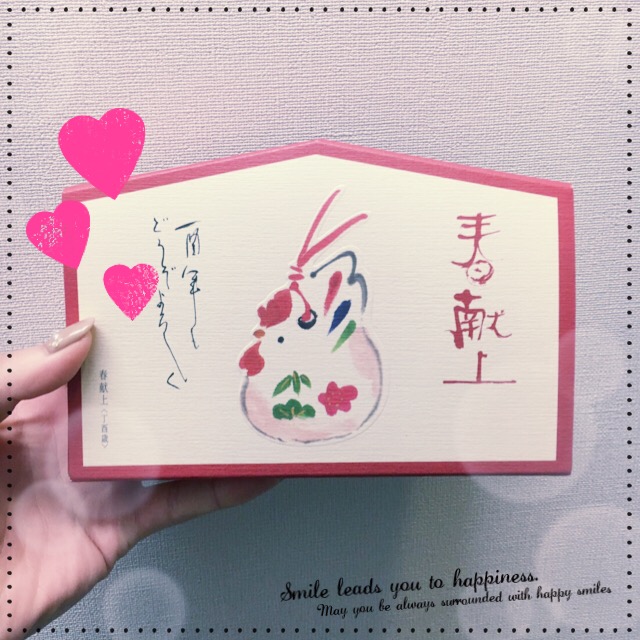 春献上
酉年も
どうぞよろしく
春献上(丁酉歳)
Smile leads you to happiness.
May you be always surrounded with happy smiles